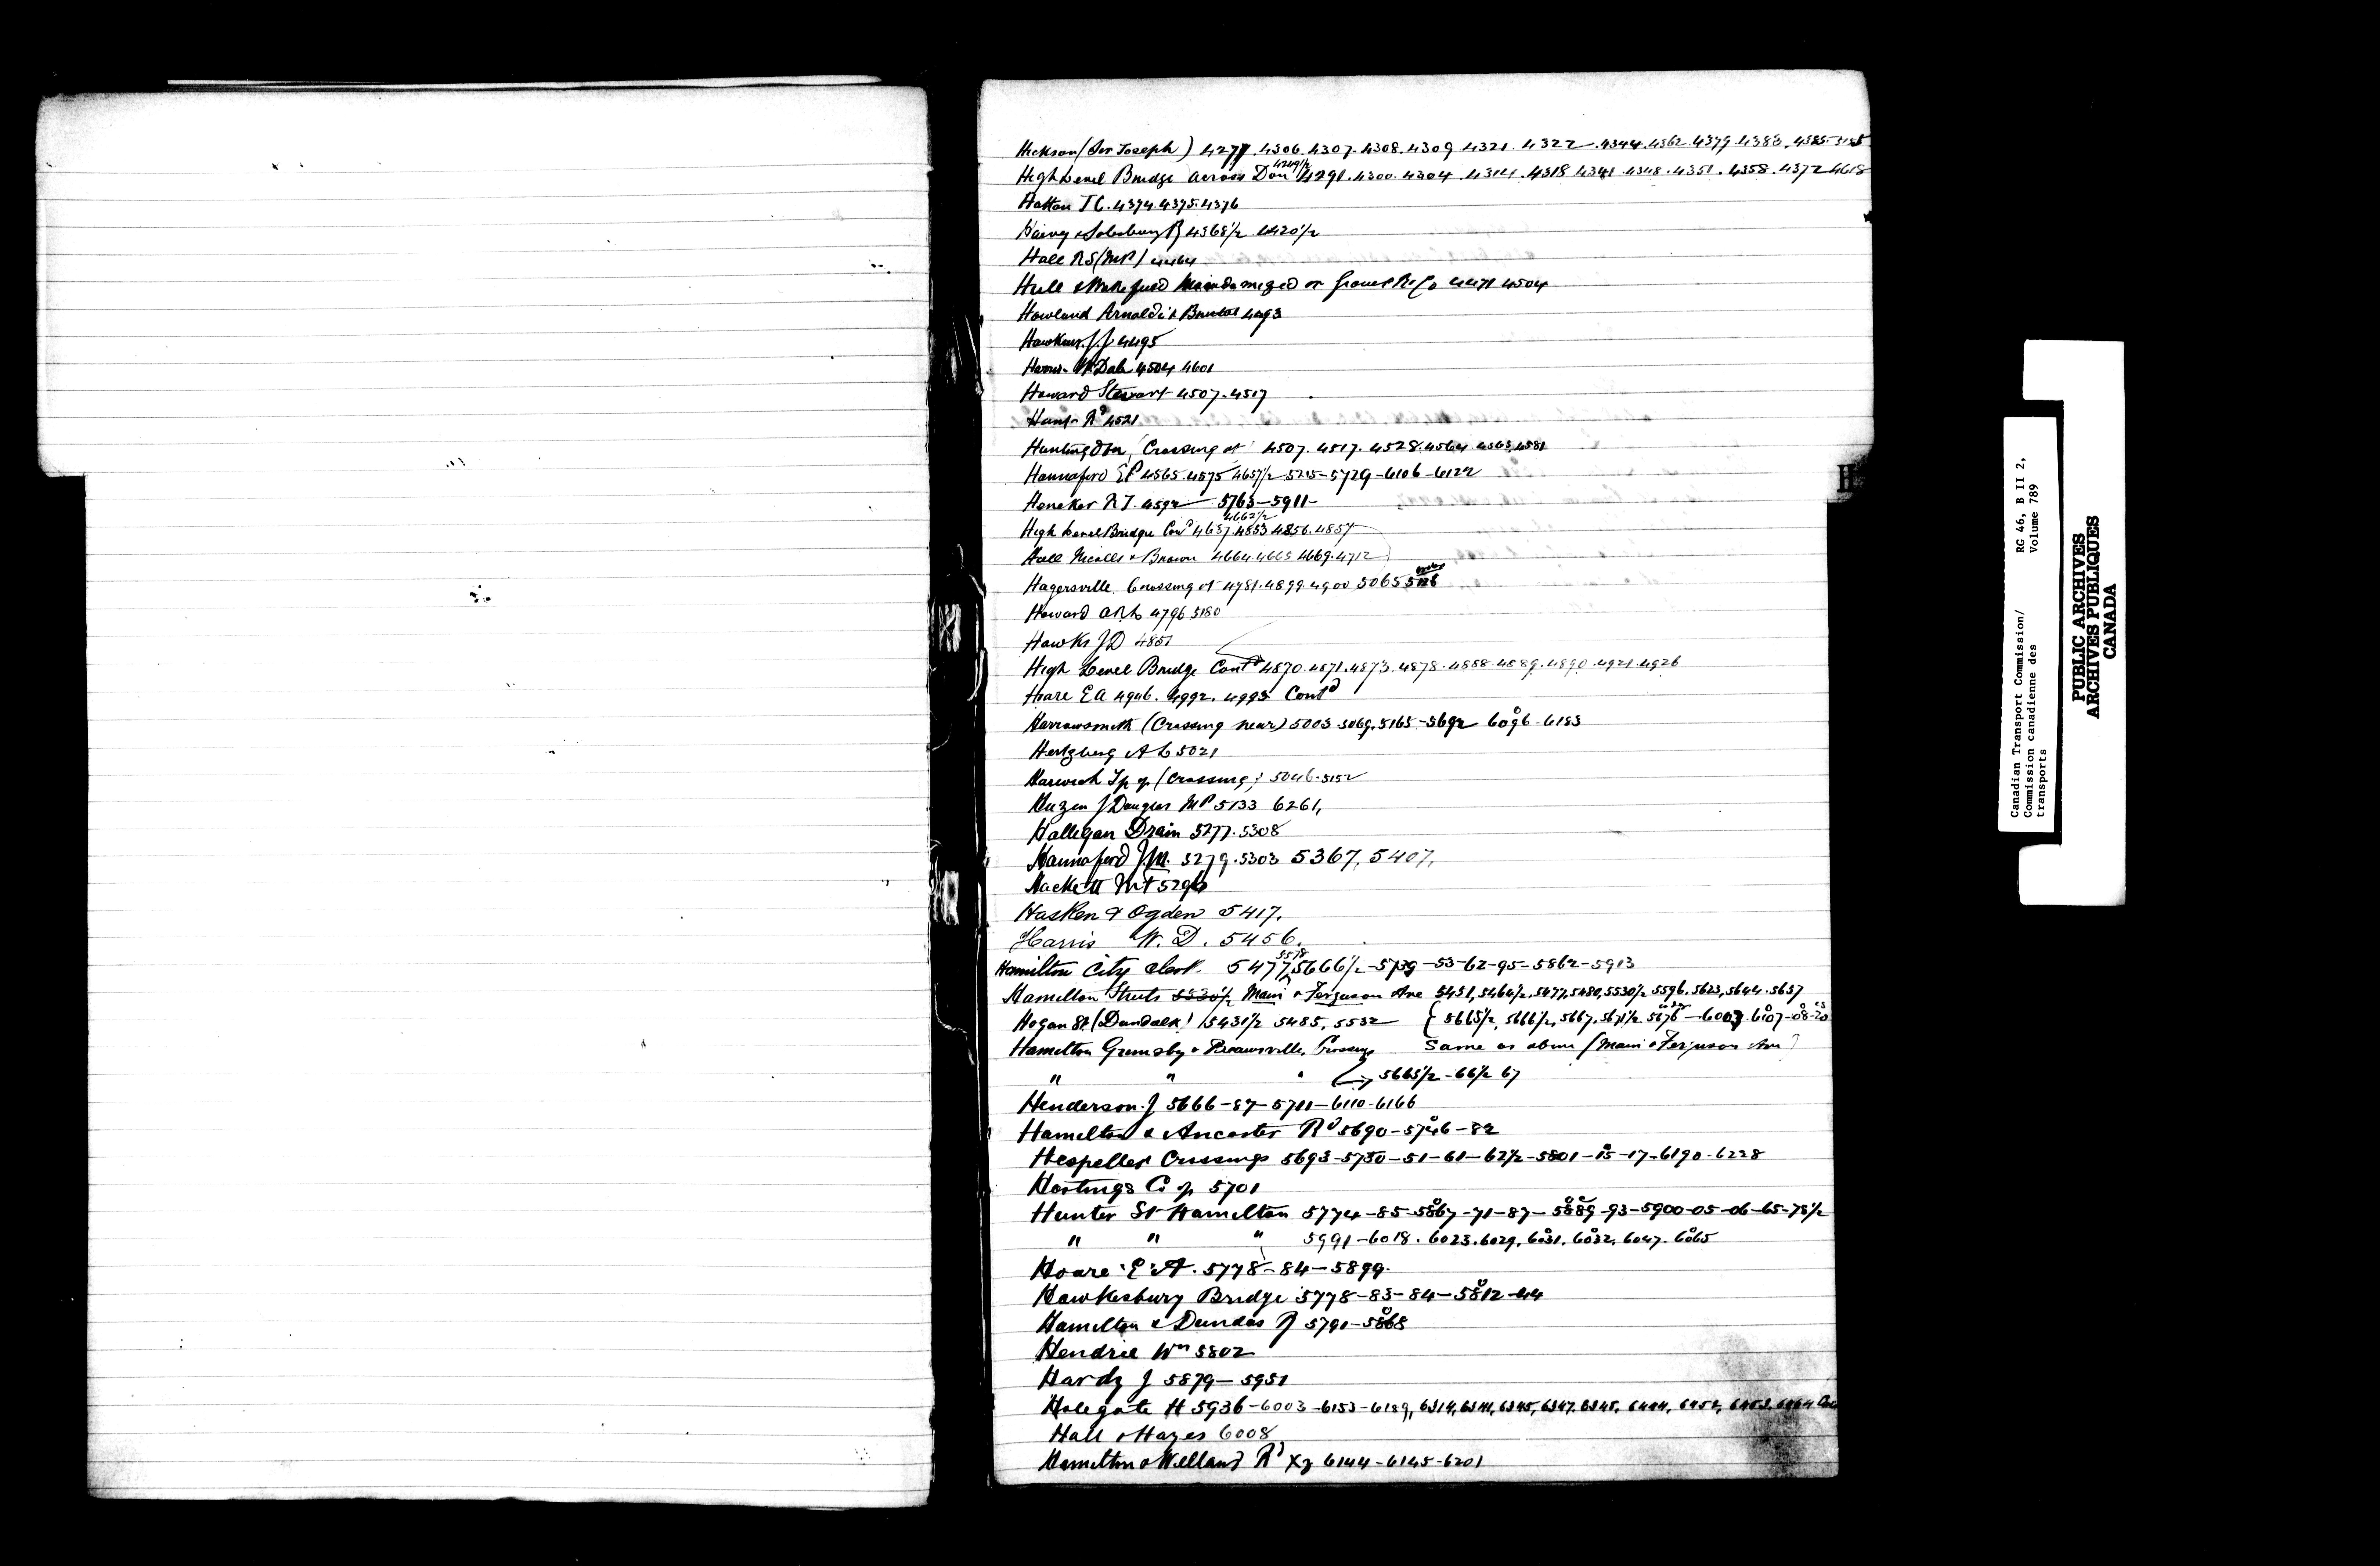 Hickson (Sir Joseph) 4277. 4306. 4307. 4308. 4309 4321. 4322 4344. 4362. 4379. 4383. 4385
High Level Bridge across Don 4249½ 4291. 4300. 4304 4314. 4318 4341 4348. 4351. 4358. 4372 4618
Hatton J C. 4374. 4375. 4376
Harvey & Salisbury Ry 4368½ 4420½
Hall R S (MP) 4464
Hull & Wakefield Macadamized or Gravel Rd Co 4471 4504
Howland Arnoldi & 4493
Hawkins J. J 4495
Harris W. Dale 4504 4601
Howard Stewart 4507. 4517
Rd 4521
Huntingdon, Crossing at 4507. 4517. 4528. 4564 4565. 4581
Hannaford E P 4565. 4575 4657½ 5215-5729-6106-6122
Heneker R T. 4592 5763-5911-
High Level Bridge Cond 4657. 4662½ 4853 4856. 4857
Hall Nicolls & Brown 4664. 4665 4669. 4712
Hagersville. Crossing at 4781. 4899. 4900 5065 5126
Howard 4796 5180
Hawks J D 4851
High Level Bridge Contd 4870. 4871. 4873. 4878. 4888 4889. 4890. 4921. 4926
Hoare E A 4946. 4992. 4993 Contd
Harrowsmith (Crossing near) 5003 5069. 5165-5692 6096-6153
Hertzberg A L 5021
Harwich Tp of (Crossing) 5046. 5152
Hazen J Douglas MP 5133 6261,
Hallegan Drain 5277. 5308
Hannaford J. M. 5279. 5303 5367, 5407,
Hackett
Hasken & Ogden 5417.
Harris W. D. 5456.
Hamilton City Clerk. 5477, 5578 5666½-5739-53-62-95-5862-5913
Hamilton Streets 5530½ Main & Ferguson Ave 5451, 5464½, 5477, 5480, 5530½ 5596. 5623, 5644. 5657
Hogan St. (Dundalk) 5431½ 5485, 5532 { 5665½, 5666½, 5667, 5671½ 5676-6003. 6107-08-20
Hamilton Grimsby & Beamsville, Crossings Same as above (Main & Ferguson Ave)
" " " 5665½-66½ 67
Henderson. J 5666-87-5711-6110-6166
Hamilton & Ancaster Rd 5690-5746-82
Hespeller Crossings 5693-5750-51-61-62½-5801-15-17-6190-6228
Hastings Co of 5701
Hunter St Hamilton 5774-85-5867-71-87-5889-93-5900-05-06-65-78½
" " " 5991-6018. 6023. 6029. 6031. 6032. 6047. 6065
Hoare E. A. 5778-84-5899.
Hawkesbury Bridge 5778-83-84-5812-44
Hamilton & Dundas Ry 5791-5868
Hendrie Wm 5802
Hardy J 5879-5951
Holegate H 5936-6003-6153-6189, 6314, 6341, 6345, 6347. 6345.
Hall & Hayes 6008
Hamilton & Welland Rd Xg 6144-6145-6201
H
Canadian Transport Commission/
Commission canadienne des
transports
RG 46, B II 2,
Volume 789
PUBLIC ARCHIVES
ARCHIVES PUBLIQUES
CANADA